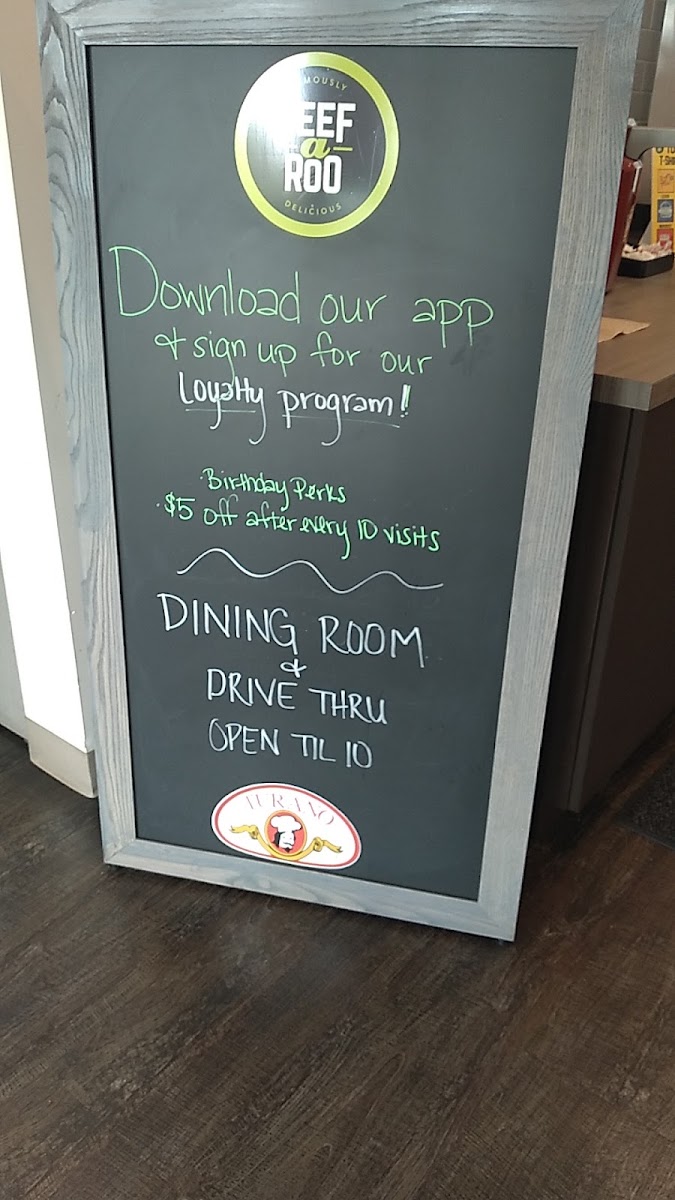 MOUSLY
EEF
a
ROO
DELICIOUS
Download our app
& sign up for our
Loyalty program!
·Birthday Perks
·$5 off after every 10 visits
DINING ROOM
&
DRIVE THRU
OPEN TIL 10
TURANO